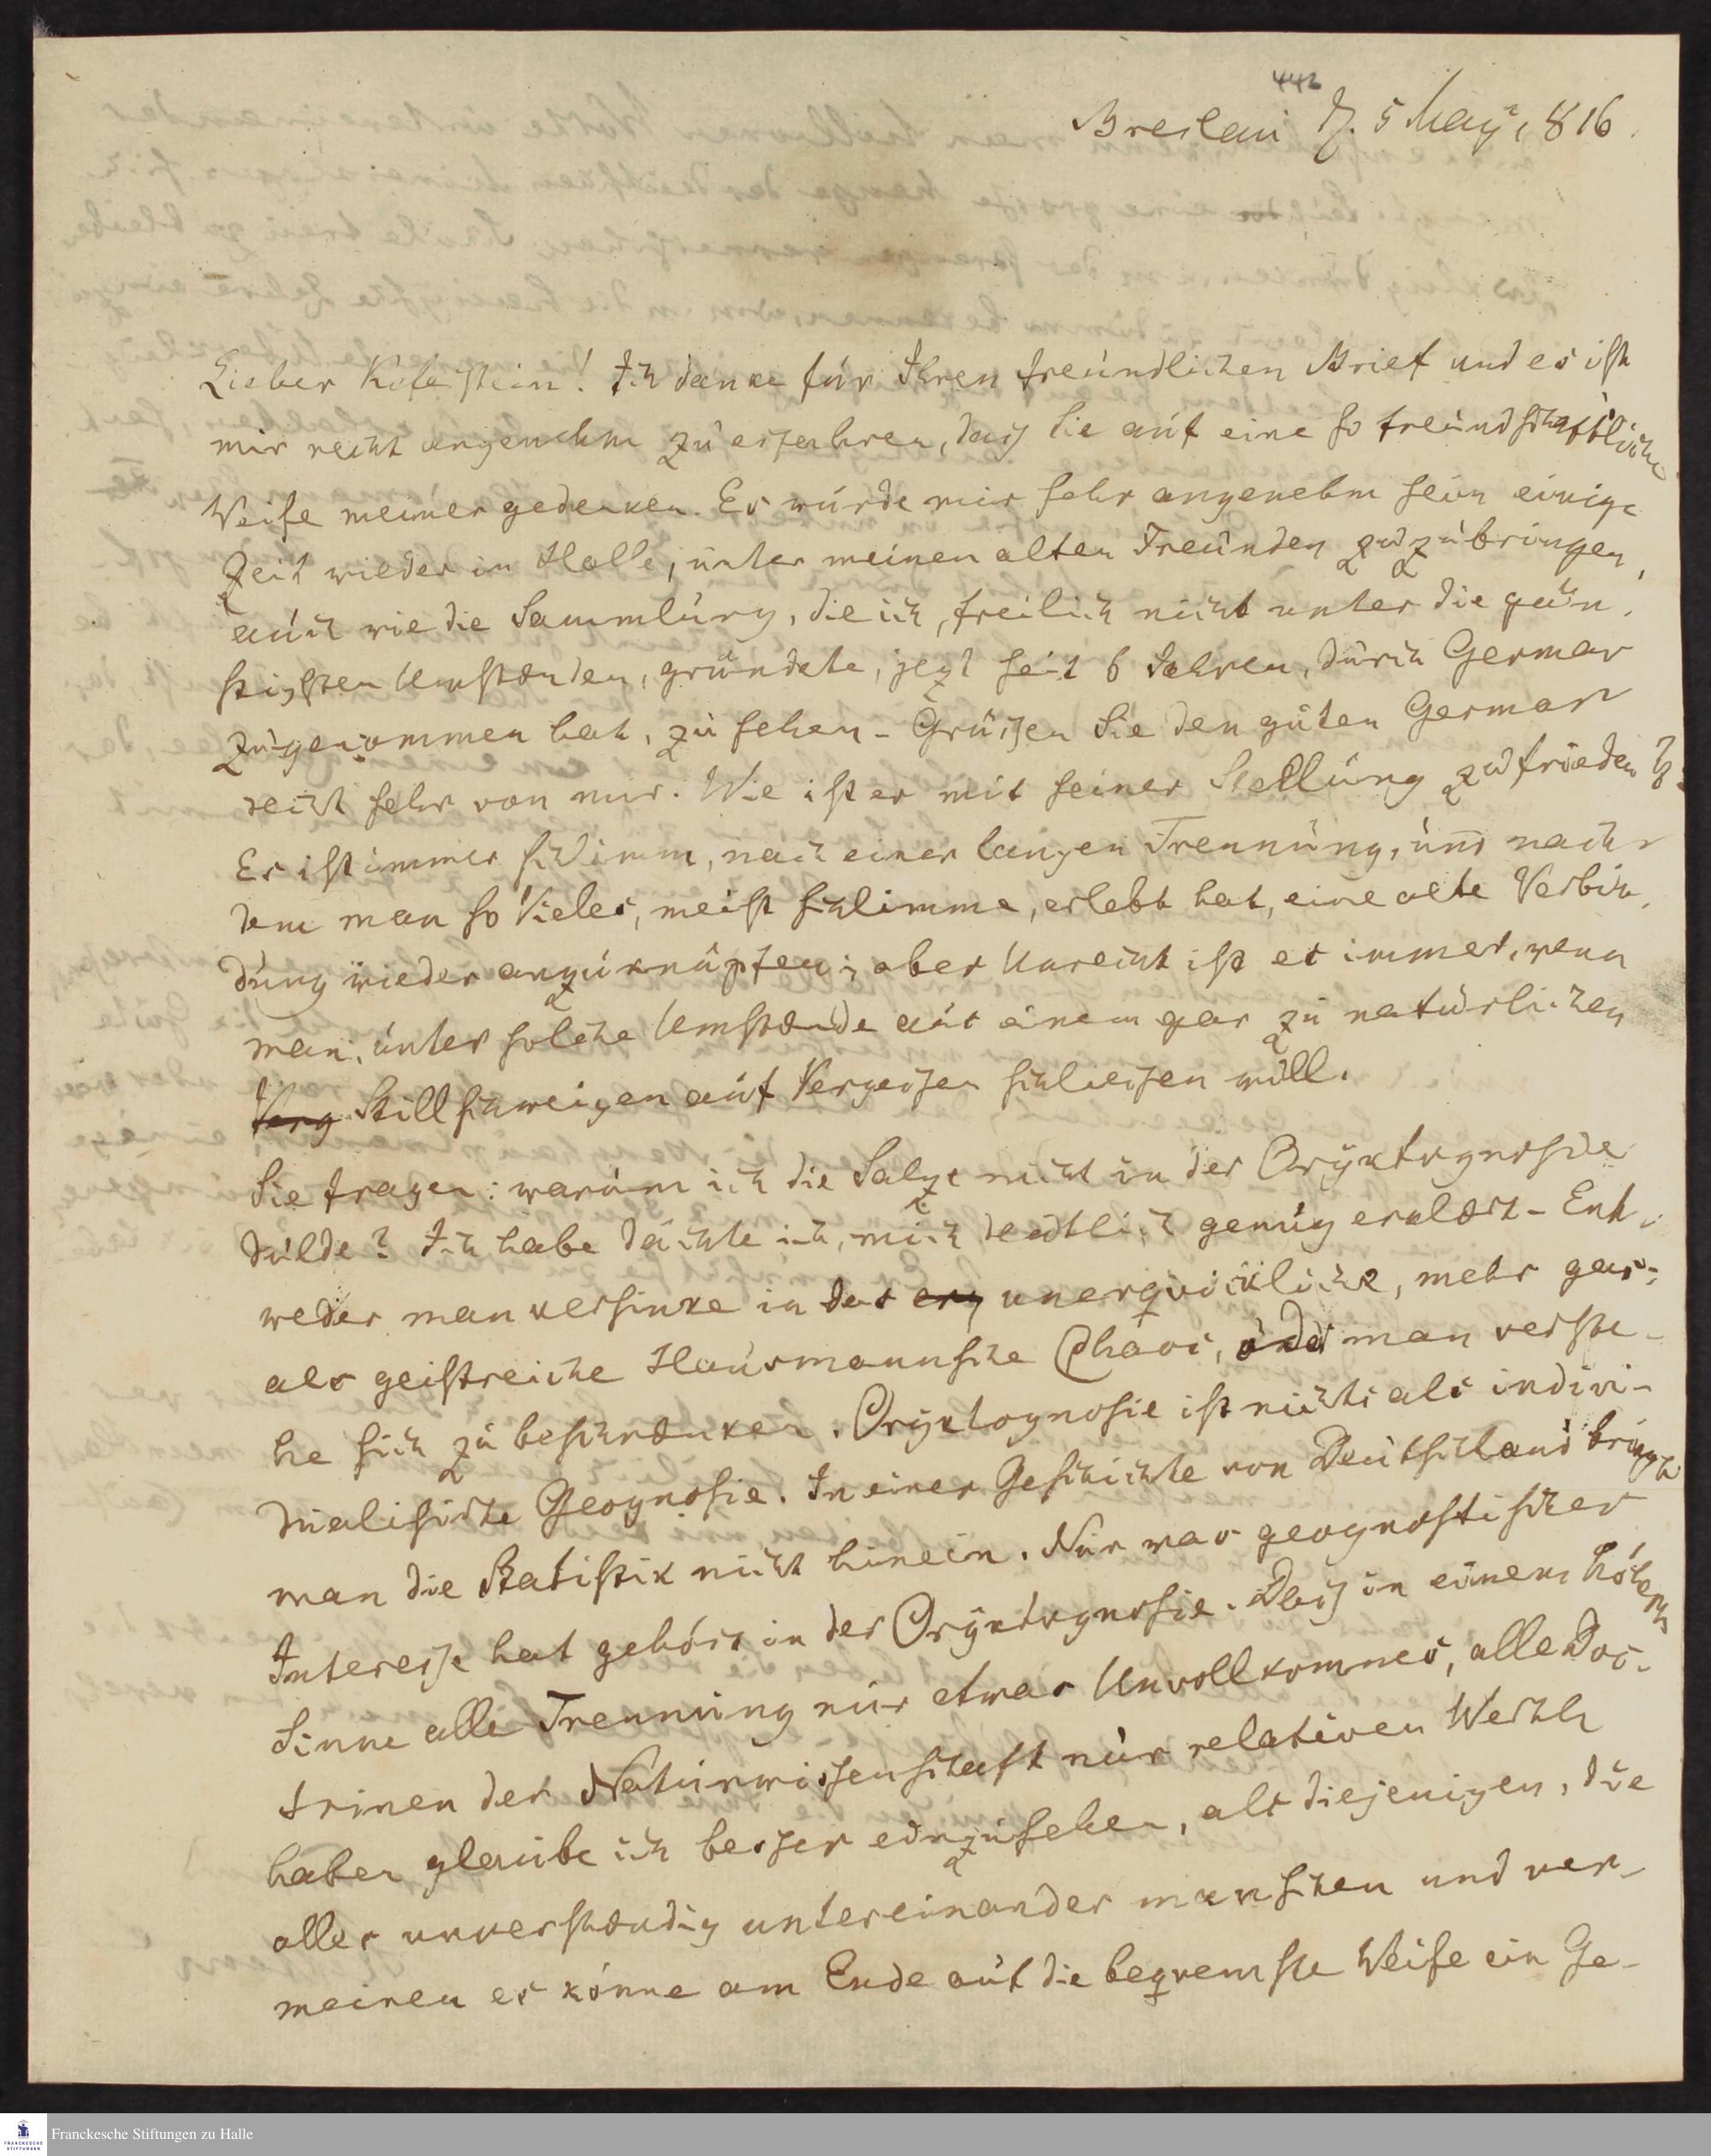 442
Breslau d. 5 May 1816.
Lieber Keferstein! Ich danke für Ihren freündlichen Brief und es ist
mir recht angenehm zu erfahren, dass Sie auf eine so freündschaftliche
Weise meiner gedenken. Es würde mir sehr angenehm sein einige
Zeit wieder in Halle, unter meinen alten Freunden zuzubringen,
auch wie die Sammlung, die ich, freilich nicht unter die gün-
stigsten Umstænden, gründete, jezt seit 6 Jahren, durch Germar
zugenommen hat, zu sehen - Grüssen Sie den guten Germar
recht sehr von mir. Wie ist er mit seiner Stellung zufrieden?
Es ist immer schlimm, nach einer langen Trennung, und nach-
dem man so Vieles, meist schlimme, erlebt hat, eine alte Verbin-
dung wieder anzuknüpfen; aber Unrecht ist es immer, wenn
man, unter solche Umstænde aus einem gar zu natürlichen
Verg Stillschweigen auf Vergessen schliessen will.
Sie fragen: warum ich die Salze nicht in der Oryktognosie
dulde? Ich habe dächte ich, mich deutlich genug erklært - Ent-
weder man versinke in das erq unerquickliche, mehr gas-
als geistreiche Hausmannsche Chaos, oder man verste-
he sich zu beschrænken. Oryktognosie ist nichts als indivi-
dualisirte Geognosie. In einer Geschichte von Deutschland bringt
man die Statistik nicht hinein. Nur was geognostisches
Interesse hat gehört in der Oryktognosie. Dass in einem höhern
Sinne alle Trennung nur etwas Unvollkomnes, alle Doc-
trinen der Naturwissenschaft nur relativen Werth
haben glaube ich besser einzusehen, als diejenigen, die
alles unverstændig untereinander manschen und ver-
meinen es könne am Ende auf die bequemste Weise ein Ge-
FRANCKESCHE STIFTUNGEN
Franckesche Stiftungen zu Halle